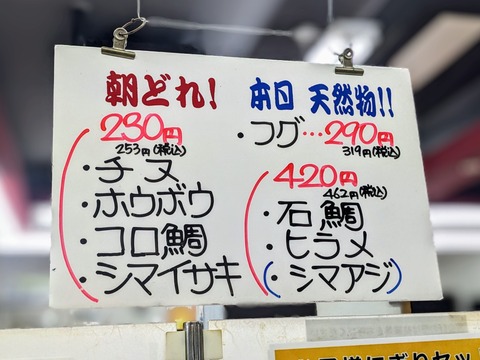 朝どれ!
230円
253円(税込)
・チヌ
・ホウボウ
・コロ鯛
・シマイサキ
本日 天然物!!
・フグ…290円
319円(税込)
420円
462円(税込)
・石鯛
・ヒラメ
(・シマアジ)